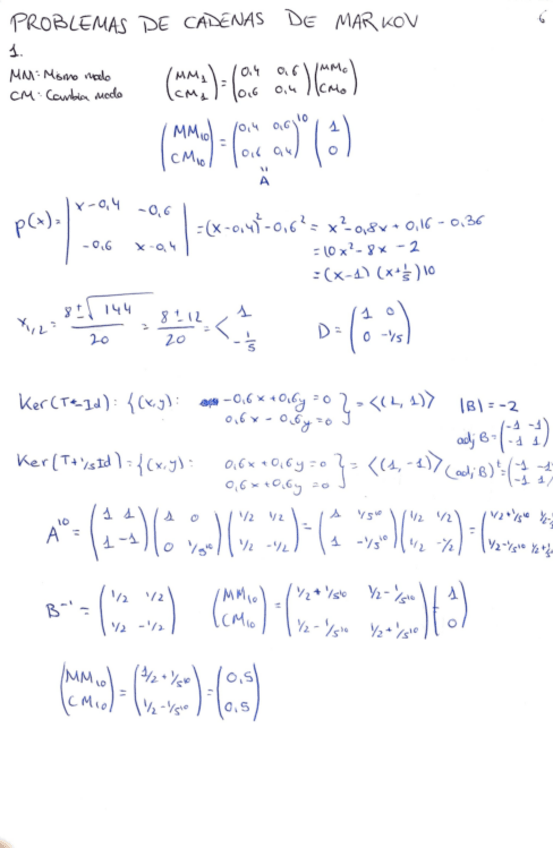 PROBLEMAS DE CADENAS DE MARKOV 6
1.
MM: Mismo modo
CM: Cambia modo
(MM₁ / CM₁) = (0,4 0,6 / 0,6 0,4)(MM₀ / CM₀)
(MM₁₀ / CM₁₀) = (0,4 0,6 / 0,6 0,4)¹⁰ (1 / 0)
" A
p(x) = |x-0,4 -0,6 / -0,6 x-0,4| = (x-0,4)² - 0,6² = x² - 0,8x + 0,16 - 0,36
= 10x² - 8x - 2
= (x-1)(x+1/5)10
x₁,₂ = (8 ± √144)/20 = (8 ± 12)/20 = < 1 / -1/5 D = (1 0 / 0 -1/5)
Ker(T-Id): {(x,y): -0,6x + 0,6y = 0 / 0,6x - 0,6y = 0} = <(1, 1)> |B| = -2
adj B = (-1 -1 / -1 1)
Ker(T+1/5Id) = {(x,y): 0,6x + 0,6y = 0 / 0,6x + 0,6y = 0} = <(1, -1)> (adj B)ᵗ = (-1 -1 / -1 1)
A¹⁰ = (1 1 / 1 -1)(1 0 / 0 1/5¹⁰)(1/2 1/2 / 1/2 -1/2) = (1 1/5¹⁰ / 1 -1/5¹⁰)(1/2 1/2 / 1/2 -1/2) = (1/2+1/5¹⁰ 1/2- / 1/2-1/5¹⁰ 1/2+1
B⁻¹ = (1/2 1/2 / 1/2 -1/2) (MM₁₀ / CM₁₀) = (1/2+1/5¹⁰ 1/2-1/5¹⁰ / 1/2-1/5¹⁰ 1/2+1/5¹⁰)(1 / 0)
(MM₁₀ / CM₁₀) = (1/2+1/5¹⁰ / 1/2-1/5¹⁰) = (0,5 / 0,5)